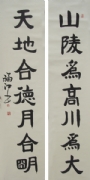 山陵為高川為大
天地合德月合明